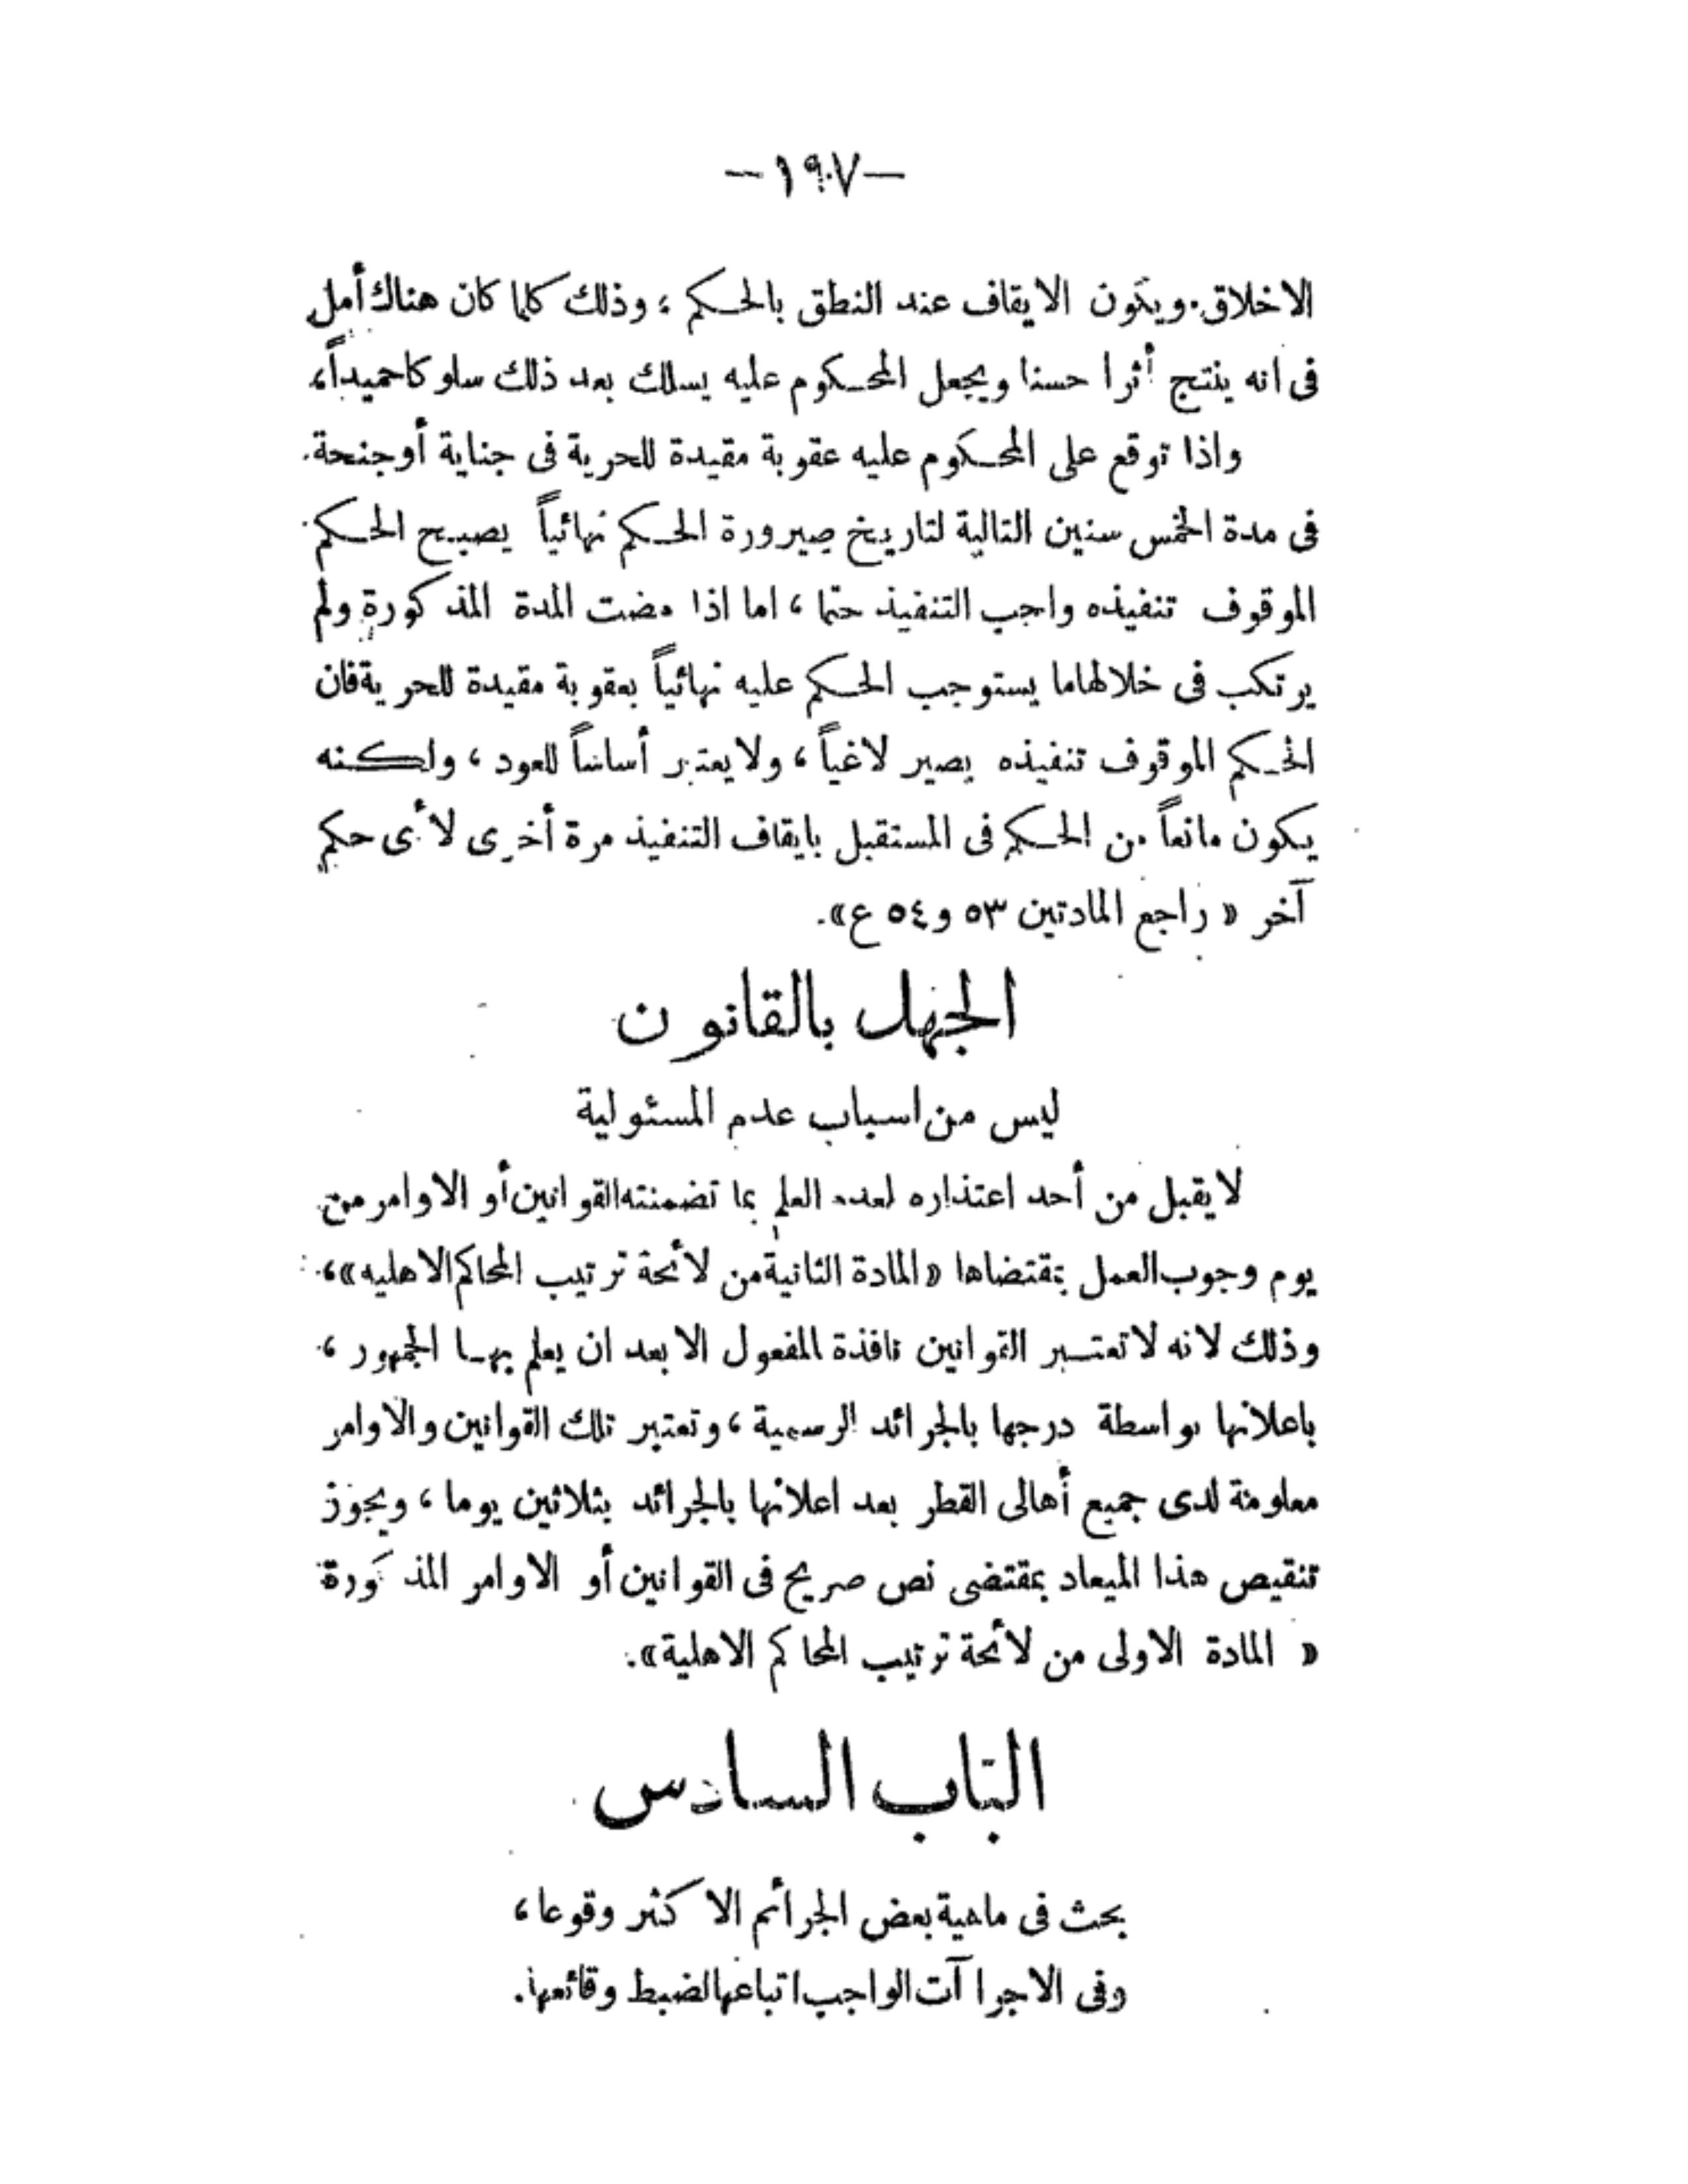 —١٩٧—
الاخلاق. ويكون الايقاف عند النطق بالحكم ؛ وذلك كلما كان هناك أمل
فى انه ينتج أثرا حسنا ويجعل المحكوم عليه يسلك بعد ذلك سلوكا حميداً،
واذا توقع على المحكوم عليه عقوبة مقيدة للحرية فى جناية أو جنحة
فى مدة الخمس سنين التالية لتاريخ صيرورة الحكم نهائياً يصبح الحكم
الموقوف تنفيذه واجب التنفيذ حتما ، اما اذا مضت المدة المذكورة ولم
يرتكب فى خلالها ما يستوجب الحكم عليه نهائياً بعقوبة مقيدة للحرية فان
الحكم الموقوف تنفيذه يصير لاغياً ، ولا يعتبر أساساً للعود ، ولكنه
يكون مانعاً من الحكم فى المستقبل بايقاف التنفيذ مرة أخرى لأى حكم
آخر « راجع المادتين ٥٣ و ٥٤ ع».
الجهل بالقانون
ليس من اسباب عدم المسئولية
لا يقبل من أحد اعتذاره لعدم العلم بما تضمنته القوانين أو الاوامر من
يوم وجوب العمل بمقتضاها «المادة الثانية من لائحة ترتيب المحاكم الاهليه»،
وذلك لانه لا تعتبر القوانين نافذة المفعول الا بعد ان يعلم بها الجمهور ،
باعلانها بواسطة درجها بالجرائد الرسمية ، وتعتبر تلك القوانين والاوامر
معلومة لدى جميع أهالى القطر بعد اعلانها بالجرائد بثلاثين يوما ، ويجوز
تنقيص هذا الميعاد بمقتضى نص صريح فى القوانين أو الاوامر المذكورة
« المادة الاولى من لائحة ترتيب المحاكم الاهلية».
الباب السادس
بحث فى ماهية بعض الجرائم الاكثر وقوعا ،
وفى الاجراآت الواجب اتباعها لضبط وقائعها.